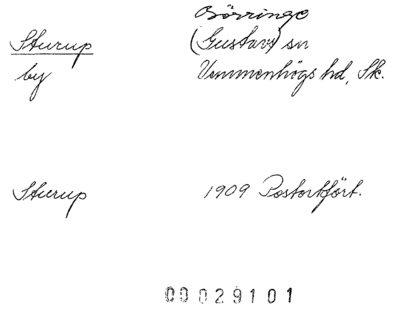 Börringe
Sturup (Gustavs) sn
by Vemmenhögs hd, Sk.
Sturup 1909 Postortsfört.
00029101